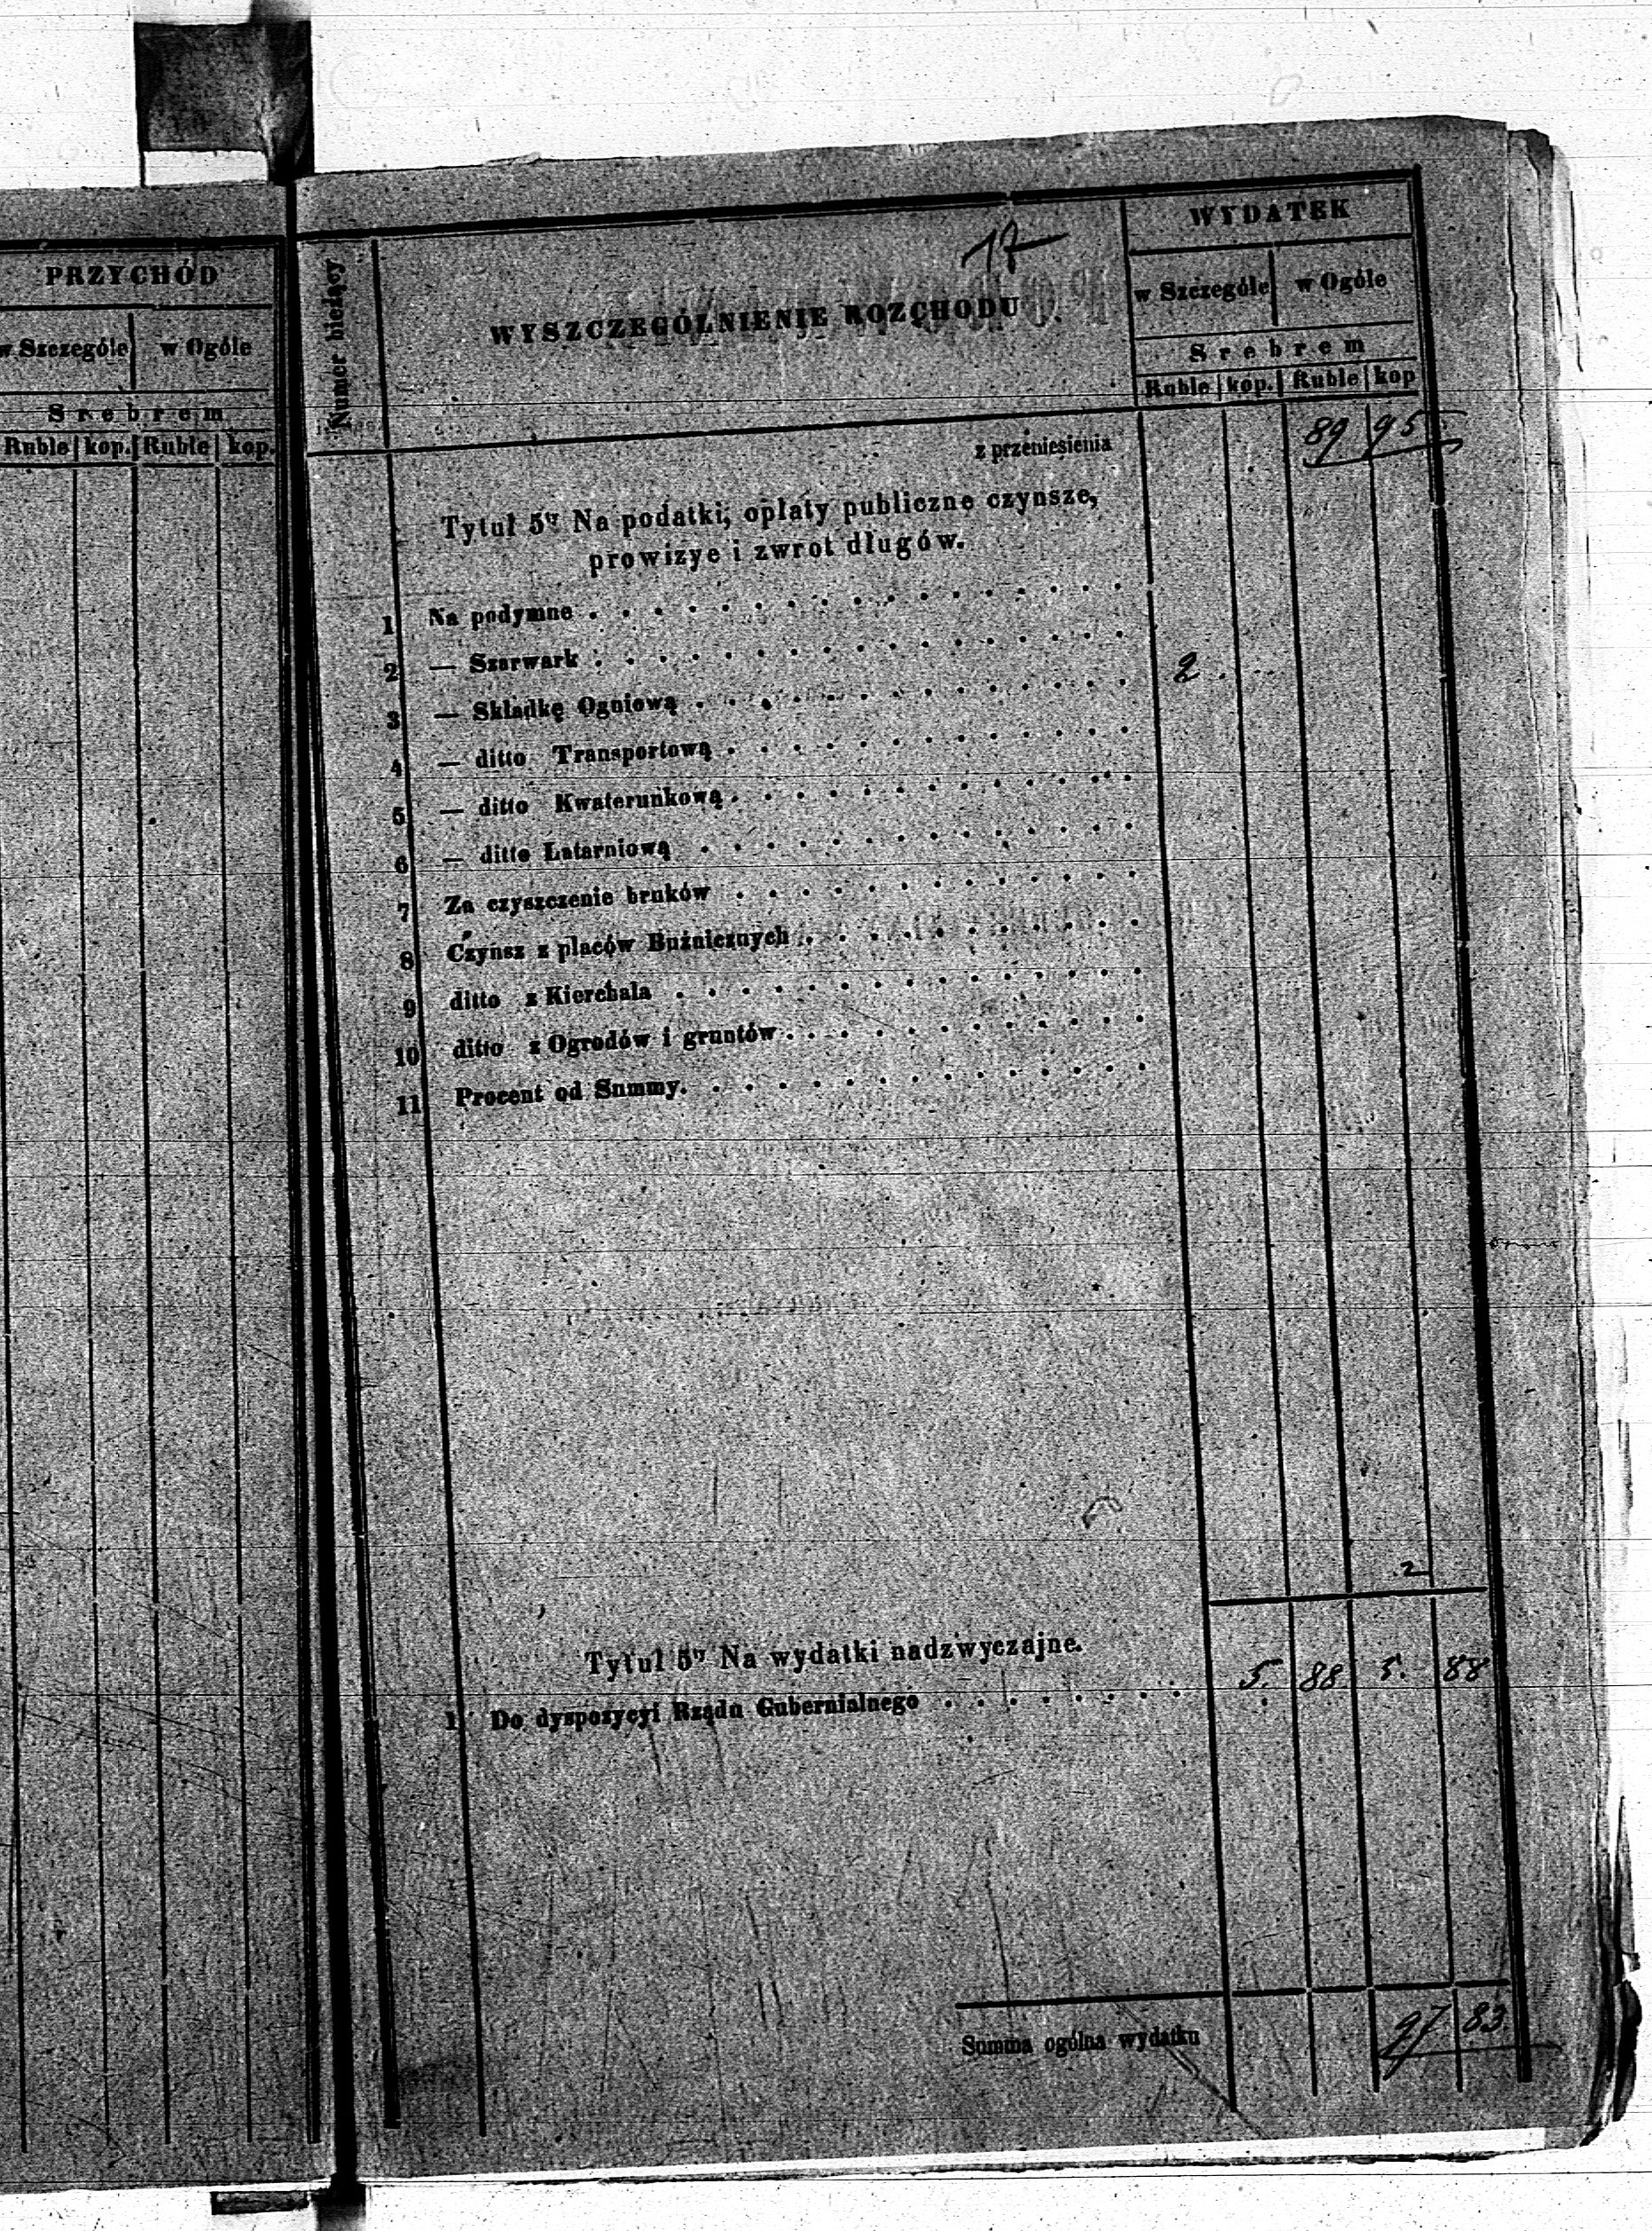 PRZYCHÓD
w Szczególe w Ogóle
Srebrem
Ruble kop. Ruble kop.
17
Numer bieżący
WYSZCZEGÓLNIENIE ROZCHODU
WYDATEK
w Szczególe w Ogóle
Srebrem
Ruble kop. Ruble kop
z przeniesienia 89 95
Tytuł 5ty Na podatki, opłaty publiczne czynsze,
prowizye i zwrot długów.
1 Na podymne
2 — Szarwark
3 — Składkę Ogniową 2
4 — ditto Transportową
5 — ditto Kwaterunkową
6 — ditto Latarniową
7 Za czyszczenie bruków
8 Czynsz z placów Bużnicznych
9 ditto z Kierchala
10 ditto z Ogrodów i gruntów
11 Procent od Summy.
2
Tytuł 5ty Na wydatki nadzwyczajne.
1 Do dyspozycyi Rządu Gubernialnego 5. 88 5. 88
Summa ogólna wydatku 97 83